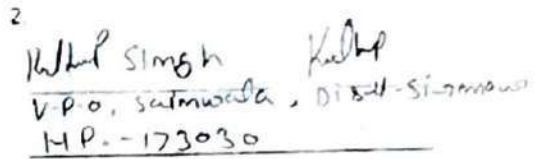 2
Kuldeep Singh Kuldeep
V.P.O, Satnwala, Distt-Sirmour
HP.-173030